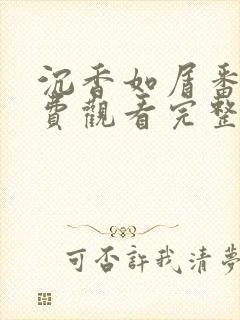 沉香如屑番
費觀看完整
可否許我清夢